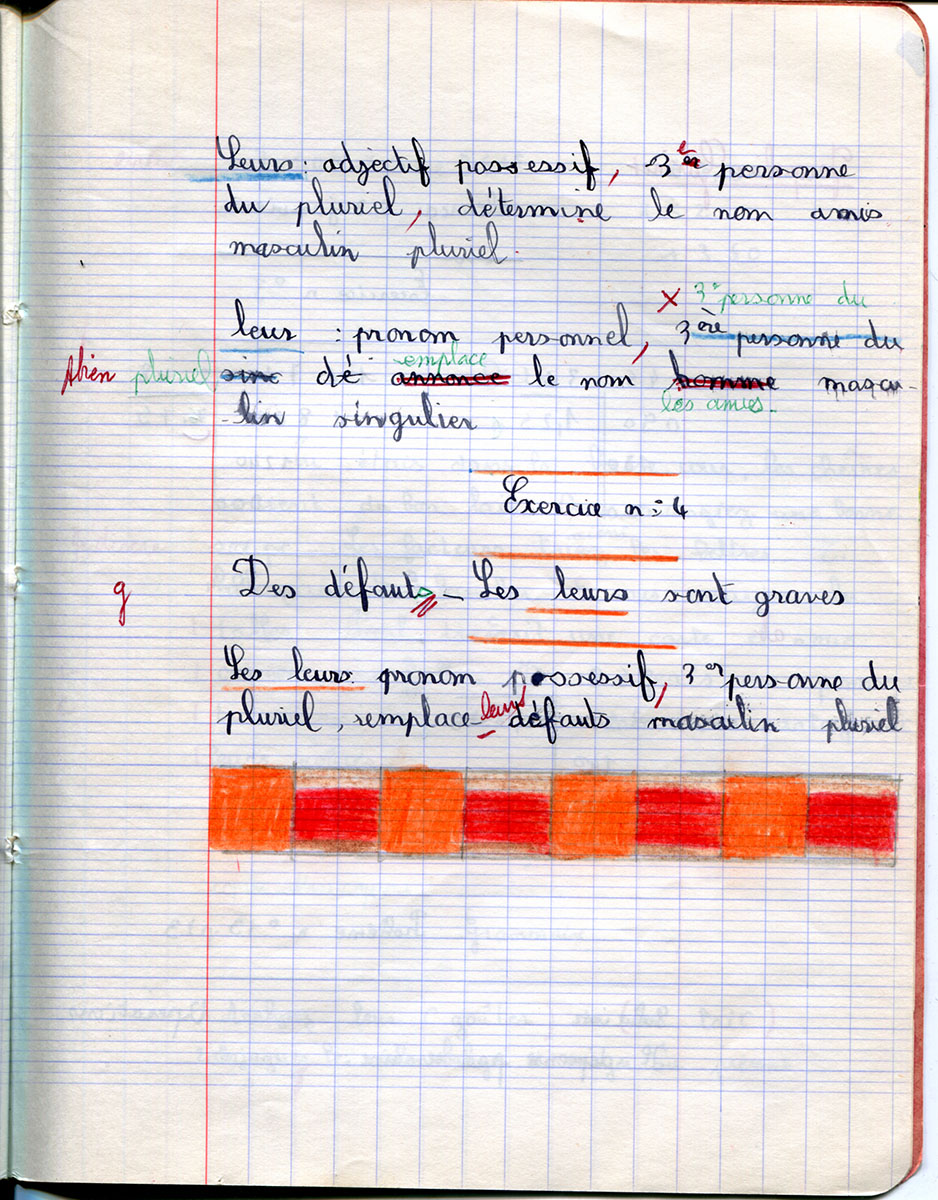 Leurs : adjectif possessif, 3e personne
du pluriel, détermine le nom amis
masculin pluriel.
x 3e personne du
leur : pronom personnel, 3ère personne du
Abien pluriel sinc dé annonce remplace le nom homme mascu-
les amies.
-lin singulier
Exercice n : 4
g Des défauts - Les leurs sont graves
Les leurs pronom possessif, 3er personne du
pluriel, remplace leurs défauts masculin pluriel